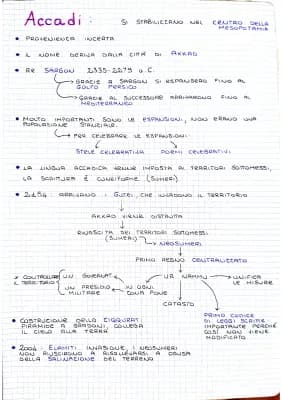 Accadi :
SI STABILIZZANO NEL CENTRO DELLA
MESOPOTAMIA
• PROVENIENZA INCERTA
• IL NOME DERIVA DALLA CITTÀ DI AKKAD
• RE SARGON 2335-2279 a.C.
GRAZIE A SARGON SI ESPANSERO FINO AL
GOLFO PERSICO
GRAZIE AL SUCCESSORE ARRIVARONO FINO AL
MEDITERRANEO
• MOLTO IMPORTANTI SONO LE ESPANSIONI, NON ERANO UNA
POPOLAZIONE STANZIALE.
PER CELEBRARE LE ESPANSIONI:
STELE CELEBRATIVA POEMI CELEBRATIVI
• LA LINGUA ACCADICA VENNE IMPOSTA AI TERRITORI SOTTOMESSI,
LA SCRITTURA È CUNEIFORME (SUMERI)
• 2154: ARRIVANO I GUTEI, CHE INVADONO IL TERRITORIO
AKKAD VIENE DISTRUTTA
RINASCITA DEI TERRITORI SOTTOMESSI
(SUMERI) NEOSUMERI
PRIMO REGNO CENTRALIZZATO
× CONTROLLARE
IL TERRITORIO
UN GOVERNAT.
UN PRESIDIO
MILITARE
IN OGNI
CITTÀ PONE
UR NAMMU
UNIFICA
LE MISURE
CATASTO
PRIMO CODICE
DI LEGGI SCRITTE:
IMPORTANTE PERCHÉ
COSÌ NON VIENE
MODIFICATO
• COSTRUZIONE DELLO ZIGGURAT
PIRAMIDE A GRADONI, COLLEGA
IL CIELO ALLA TERRA
• 2004: ELAMITI INVASIONE, I NEOSUMERI
NON RIUSCIRONO A RISOLLEVARSI A CAUSA
DELLA SALINAZIONE DEL TERRENO